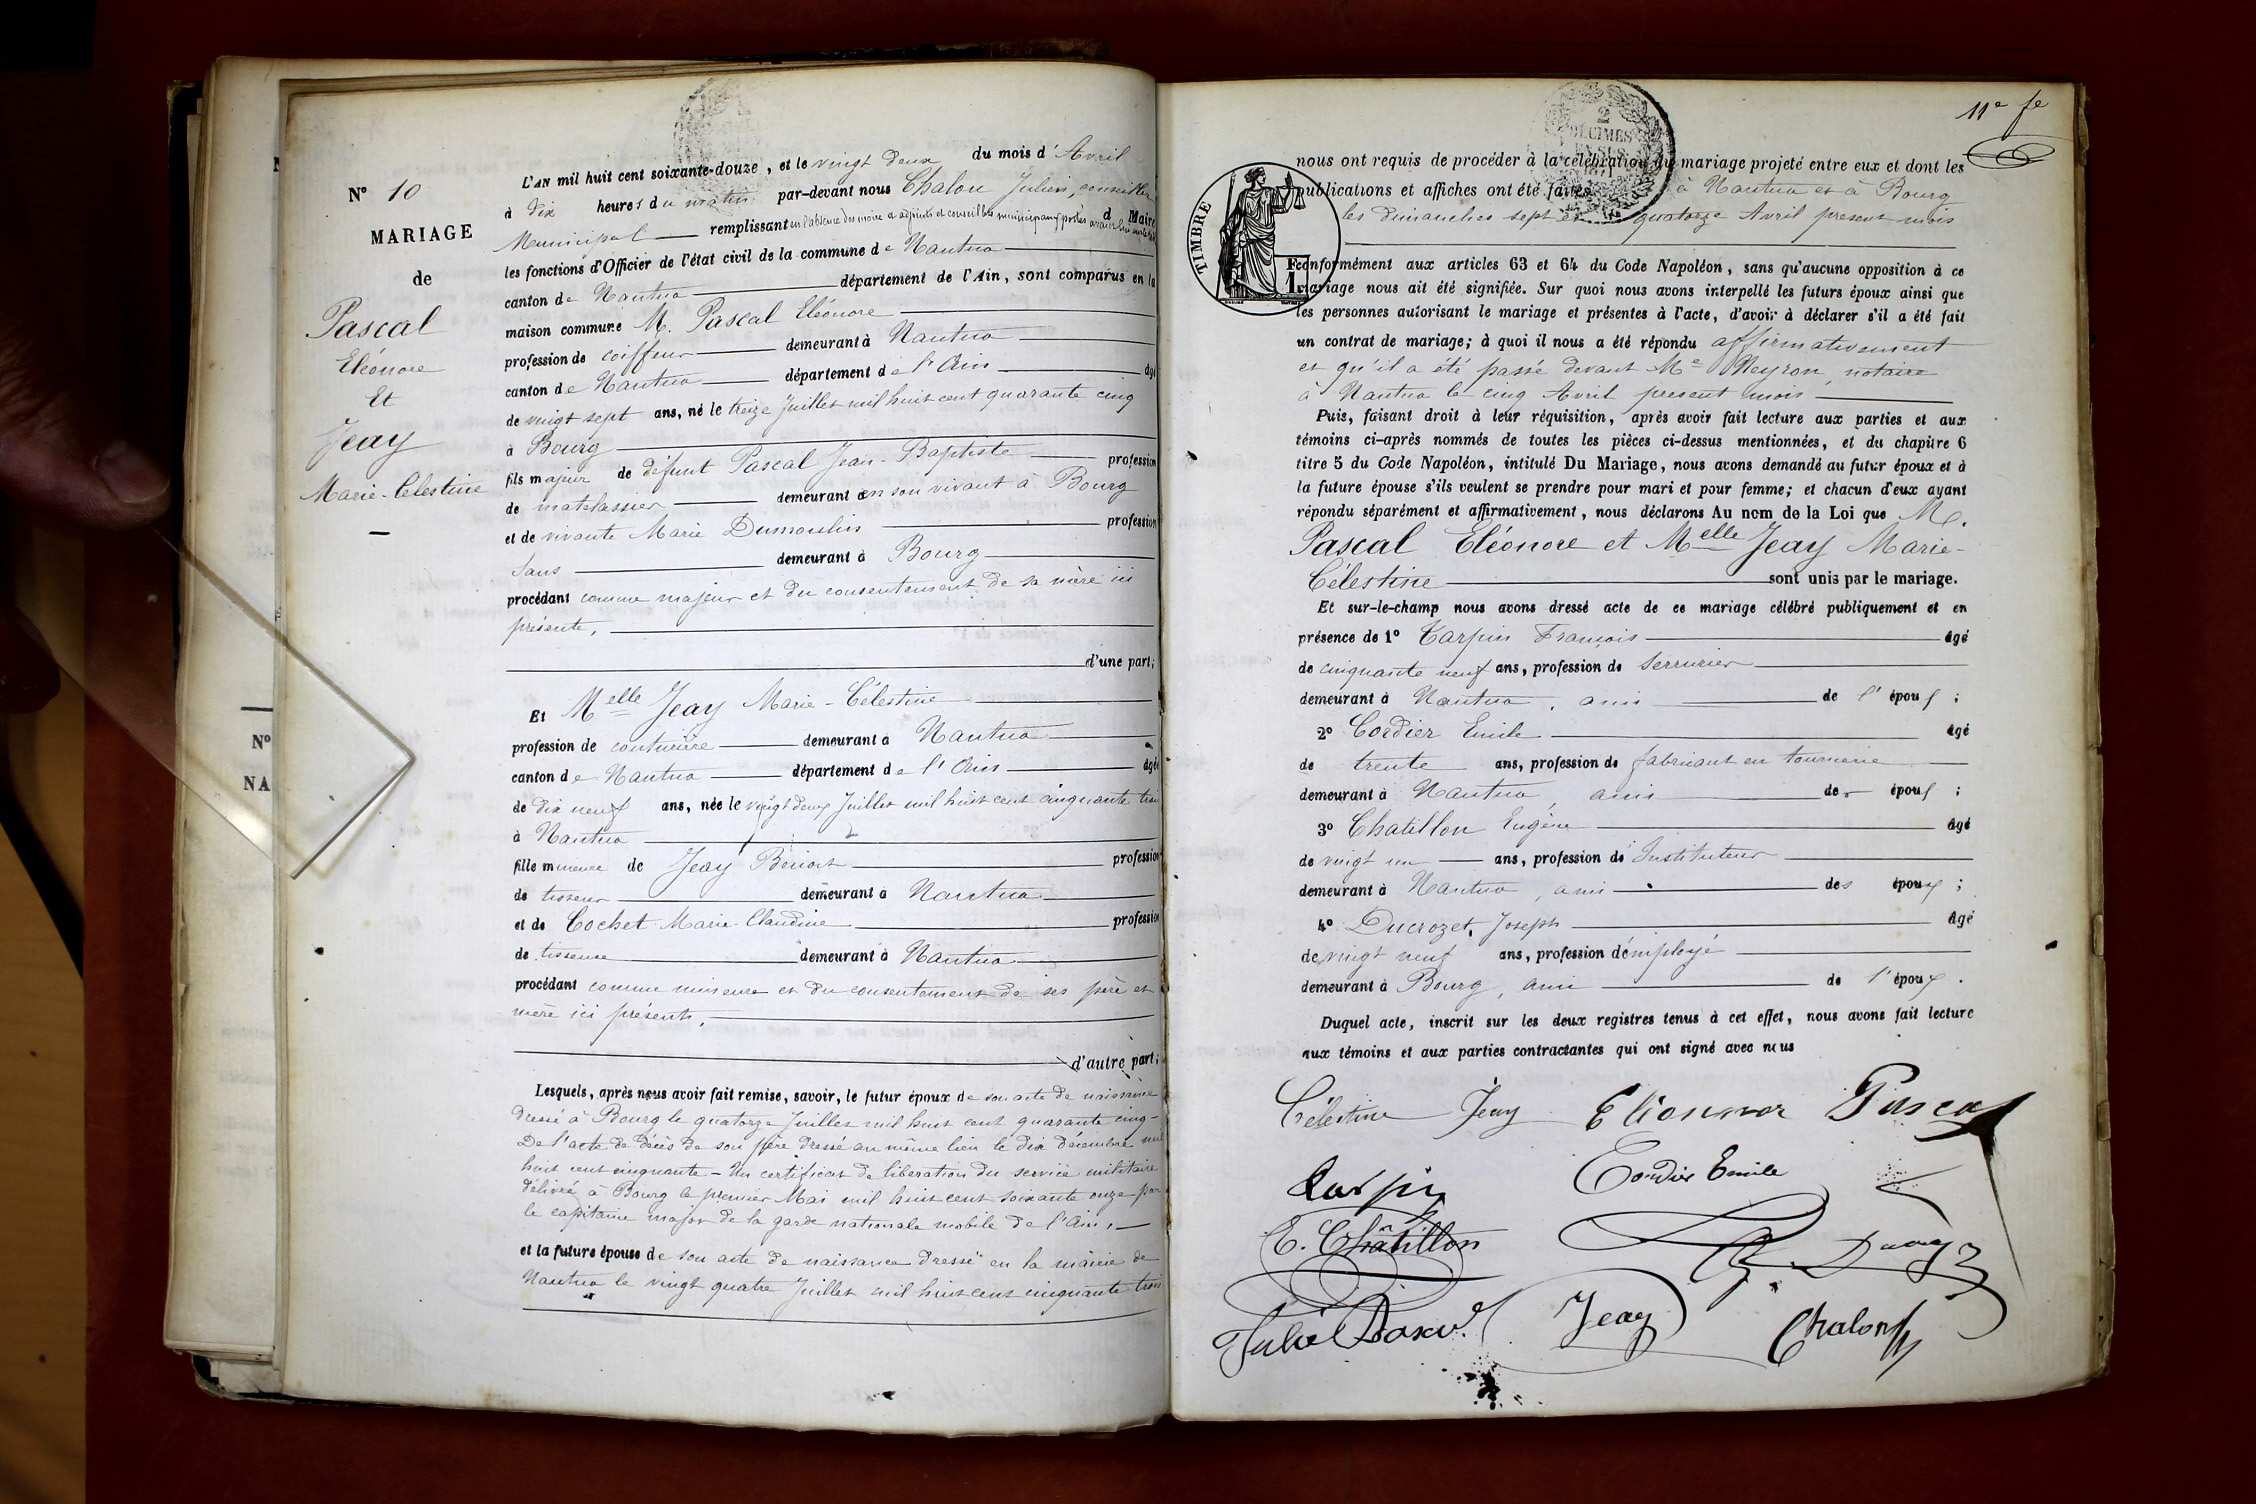 N° 10
MARIAGE
de
Pascal
Eléonore
Et
Jeay
Marie-Célestine
L'AN mil huit cent soixante-douze, et le vingt deux du mois d'Avril
à dix heures du matin par-devant nous Chalon Julien, conseiller
Municipal remplissant en l'absence des maire et adjoints et conseillers municipaux portés avant lui sur le tableau d Maire
les fonctions d'Officier de l'état civil de la commune de Nantua
canton de Nantua département de l'Ain, sont comparus en la
maison commune M. Pascal Eléonore
profession de coiffeur demeurant à Nantua
canton de Nantua département de l'Ain âgé
de vingt sept ans, né le treize Juillet mil huit cent quarante cinq
à Bourg
fils majeur de défunt Pascal Jean-Baptiste profession
de matelassier demeurant en son vivant à Bourg
et de vivante Marie Dumoulin profession
Sans demeurant à Bourg
procédant comme majeur et du consentement de sa mère ici
présente,
d'une part;
Et Melle Jeay Marie-Célestine
profession de couturière demeurant à Nantua
canton de Nantua département de l'Ain âgée
de dix neuf ans, née le vingt deux Juillet mil huit cent cinquante trois
à Nantua
fille mineure de Jeay Benoit profession
de tisseur demeurant à Nantua
et de Cochet Marie-Claudine profession
de tisseuse demeurant à Nantua
procédant comme mineure et du consentement de ses père et
mère ici présents,
d'autre part;
Lesquels, après nous avoir fait remise, savoir, le futur époux de son acte de naissance
dressé à Bourg le quatorze Juillet mil huit cent quarante cinq-
De l'acte de décès de son père dressé au même lieu le dix décembre mil
huit cent cinquante - Un certificat de libération du service militaire
délivré à Bourg le premier Mai mil huit cent soixante onze par
le capitaine major de la garde nationale mobile de l'Ain,
et la future épouse de son acte de naissance dressé en la mairie de
Nantua le vingt quatre Juillet mil huit cent cinquante trois
N°
NA
11e fe
2
DÉCIMES
EN SUS
1871
TIMBRE
1F
nous ont requis de procéder à la célébration du mariage projeté entre eux et dont les
publications et affiches ont été faites à Nantua et à Bourg
les dimanches sept et quatorze Avril présent mois
conformément aux articles 63 et 64 du Code Napoléon, sans qu'aucune opposition à ce
mariage nous ait été signifiée. Sur quoi nous avons interpellé les futurs époux ainsi que
les personnes autorisant le mariage et présentes à l'acte, d'avoir à déclarer s'il a été fait
un contrat de mariage; à quoi il nous a été répondu affirmativement
et qu'il a été passé devant Me Neyron, notaire
à Nantua le cinq Avril présent mois
Puis, faisant droit à leur réquisition, après avoir fait lecture aux parties et aux
témoins ci-après nommés de toutes les pièces ci-dessus mentionnées, et du chapitre 6
titre 5 du Code Napoléon, intitulé Du Mariage, nous avons demandé au futur époux et à
la future épouse s'ils veulent se prendre pour mari et pour femme; et chacun d'eux ayant
répondu séparément et affirmativement, nous déclarons Au nom de la Loi que M.
Pascal Eléonore et Melle Jeay Marie-
Célestine sont unis par le mariage.
Et sur-le-champ nous avons dressé acte de ce mariage célébré publiquement et en
présence de 1° Carpin François âgé
de cinquante neuf ans, profession de serrurier
demeurant à Nantua, ami de l'époux;
2° Cordier Emile âgé
de trente ans, profession de fabricant en tournerie
demeurant à Nantua, ami des époux;
3° Chatillon Eugène âgé
de vingt un ans, profession de Instituteur
demeurant à Nantua, ami des époux;
4° Ducrozet, Joseph âgé
de vingt neuf ans, profession d'employé
demeurant à Bourg, ami de l'époux.
Duquel acte, inscrit sur les deux registres tenus à cet effet, nous avons fait lecture
aux témoins et aux parties contractantes qui ont signé avec nous
Célestine Jeay Elionnor Pascal
Carpin Cordier Emile
E. Châtillon
Jeay Chalon